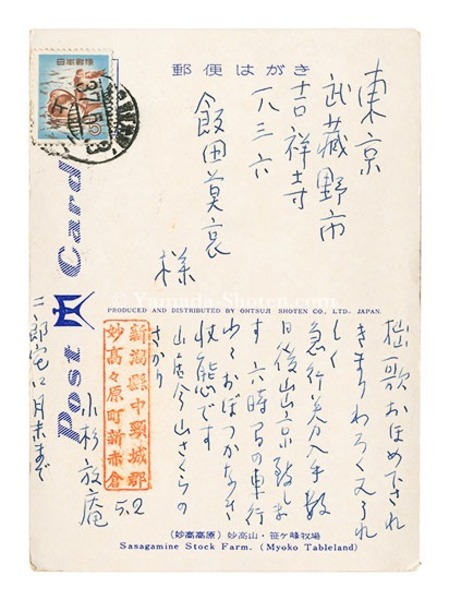 郵便はがき
東京
武藏野市
吉祥寺
一八三六
飯田莫哀
様
日本郵便
37.5.3
Post Card
© Yamada-Shoten.com
PRODUCED AND DISTRIBUTED BY OHTSUJI SHOTEN CO., LTD., JAPAN.
拙歌おほめ下され
きまりわろく
急行券入手
す 六時間の車行
おぼつかなき
収態です
山居今山ざくらの
さかり
5.2
新潟縣中頸城郡
妙高々原町新赤倉
小杉放庵
二郎宅に月末まで
(妙高高原) 妙高山・笹ヶ峰牧場
Sasagamine Stock Farm. (Myoko Tableland)